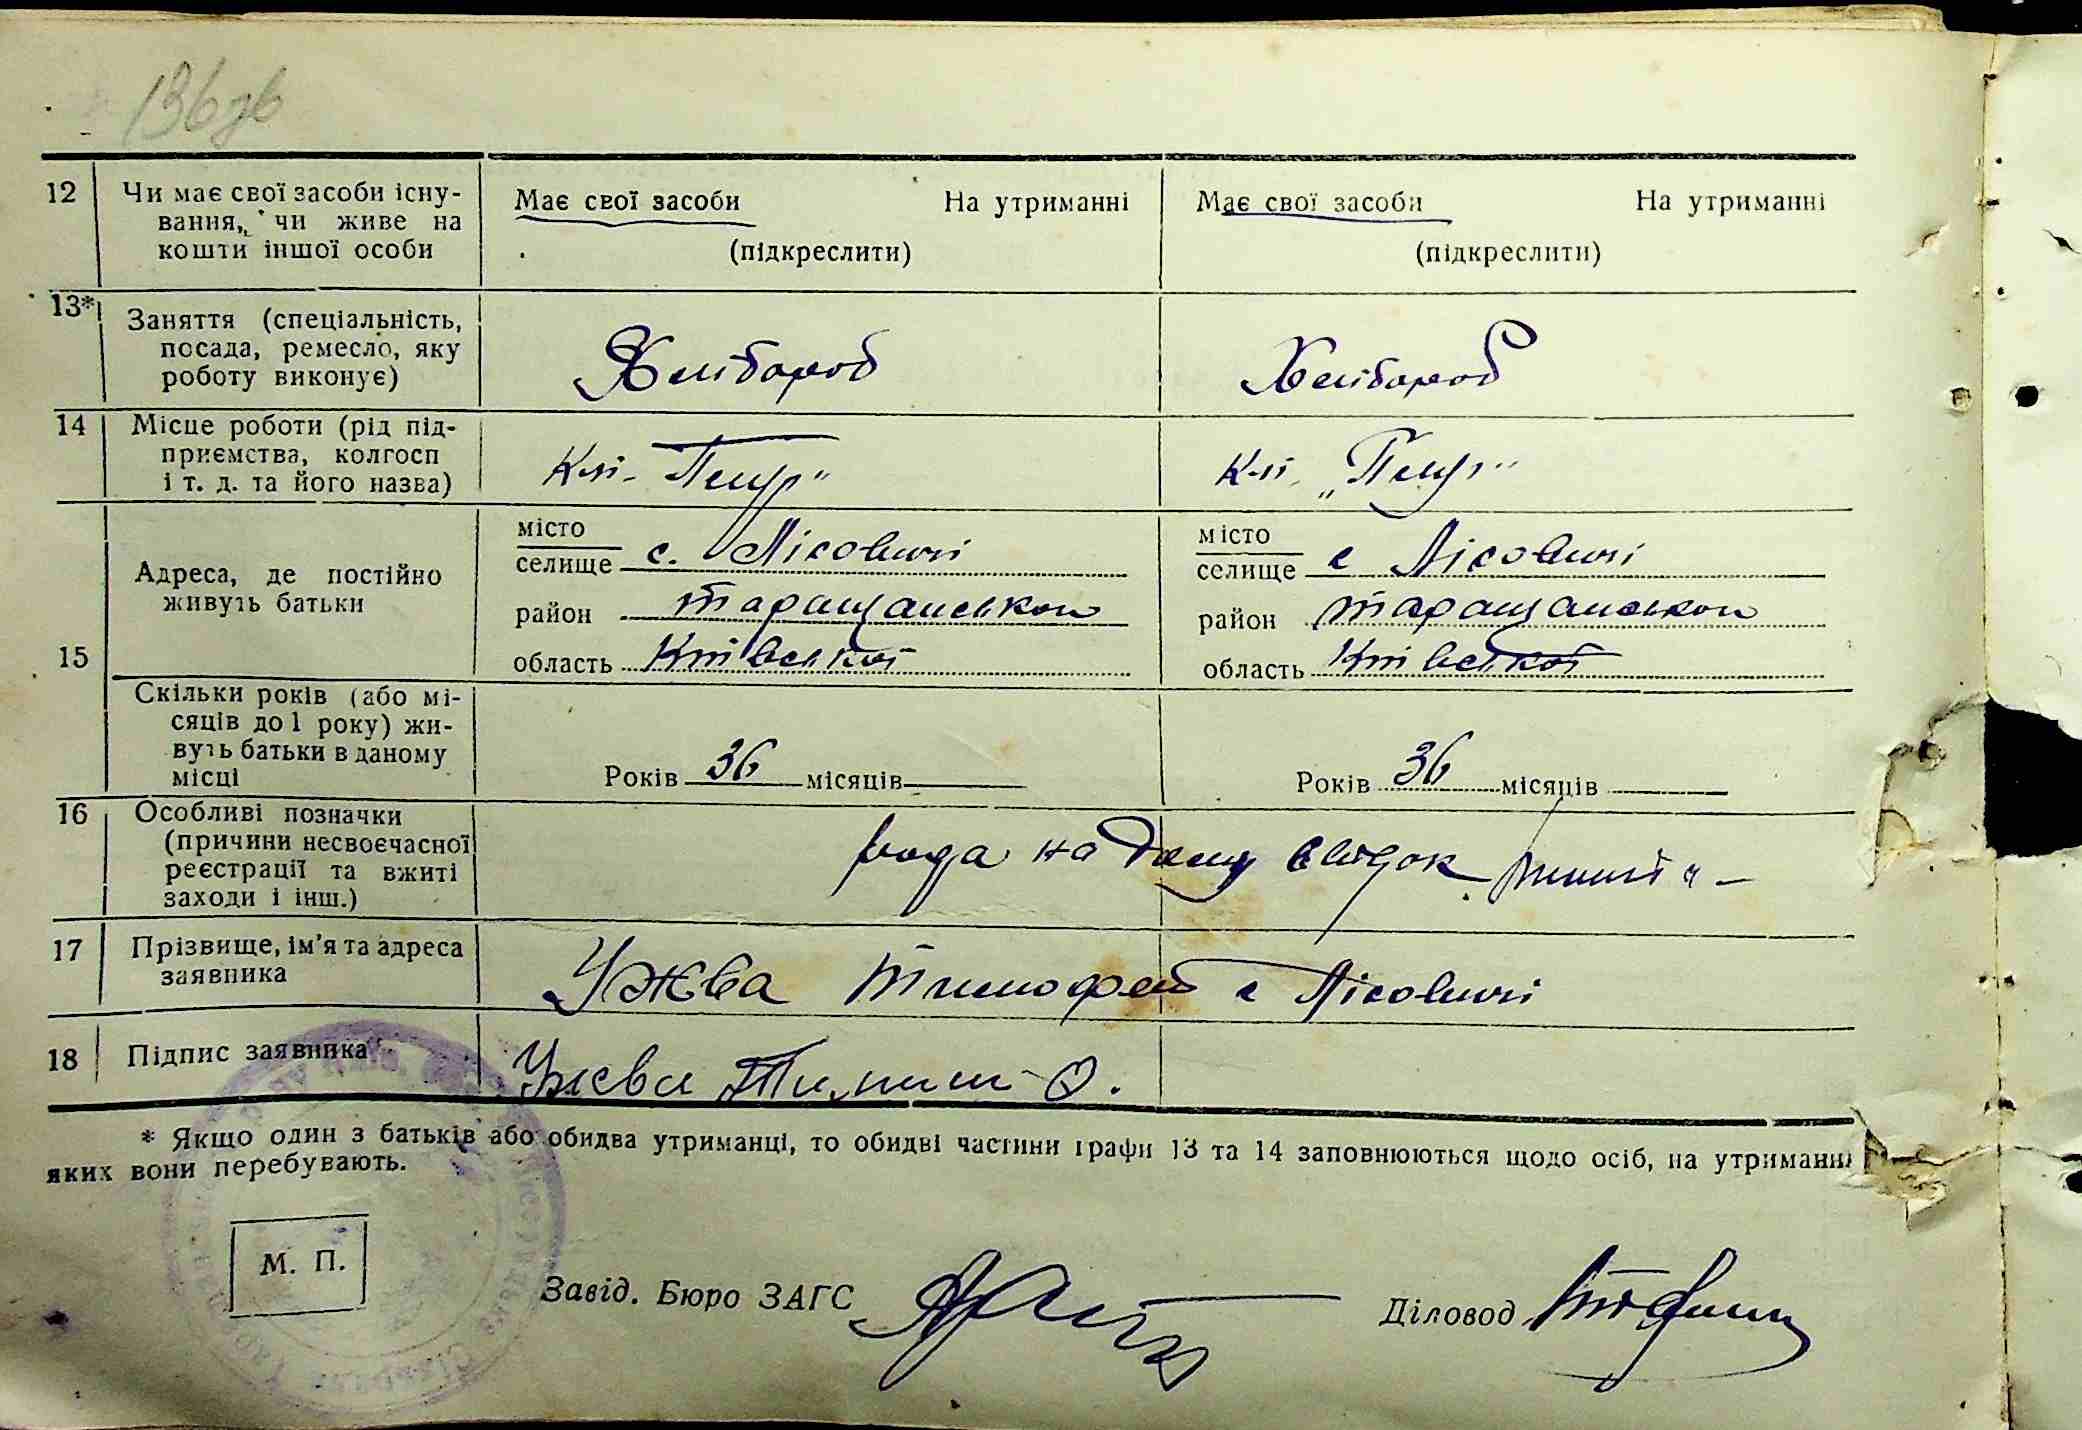 136зв
12 Чи має свої засоби існу-
вання, чи живе на
кошти іншої особи
Має свої засоби На утриманні
(підкреслити)
Має свої засоби На утриманні
(підкреслити)
13* Заняття (спеціальність,
посада, ремесло, яку
роботу виконує)
Хлібороб
Хлібороб
14 Місце роботи (рід під-
приємства, колгосп
і т. д. та його назва)
15 Адреса, де постійно
живуть батьки
місто
селище с. Лісовичі
район таращанського
область Київської
місто
селище с Лісовичі
район таращанського
область Київської
Скільки років (або мі-
сяців до 1 року) жи-
вуть батьки в даному
місці
Років 36 місяців
Років 36 місяців
16 Особливі позначки
(причини несвоєчасної
реєстрації та вжиті
заходи і інш.)
рода на дому свідок
17 Прізвище, ім'я та адреса
заявника
Ужва Тимофей с Лісовичі
18 Підпис заявника
Ужва
* Якщо один з батьків або обидва утриманці, то обидві частини графи 13 та 14 заповнюються щодо осіб, на утриманні
яких вони перебувають.
М. П.
Завід. Бюро ЗАГС
Діловод